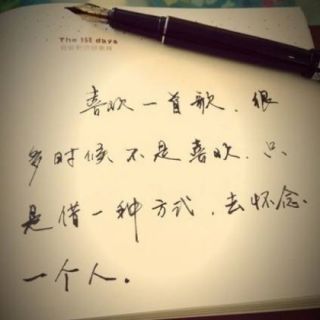 The 151 days
喜欢一首歌，很
多时候不是喜欢，只
是借一种方式，去怀念
一个人。